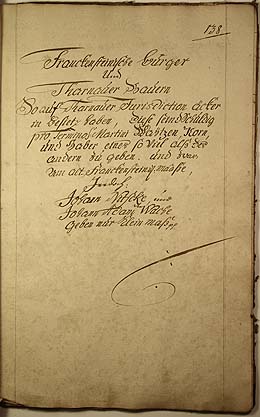 138
Franckensteinische Bürger
Und
Tharnauer Bauern
So auf Tharnauer Jurisdiction äcker
in besitz haben, Diese seind Schuldig
pro Termino Martini Waitzen Korn,
und Haber einer so Viel alß der
andern zu geben. und zwar
alt Franckensteinig. maaße,
Jedoch
Johann und
Johann Adam
Geben nur klein maß